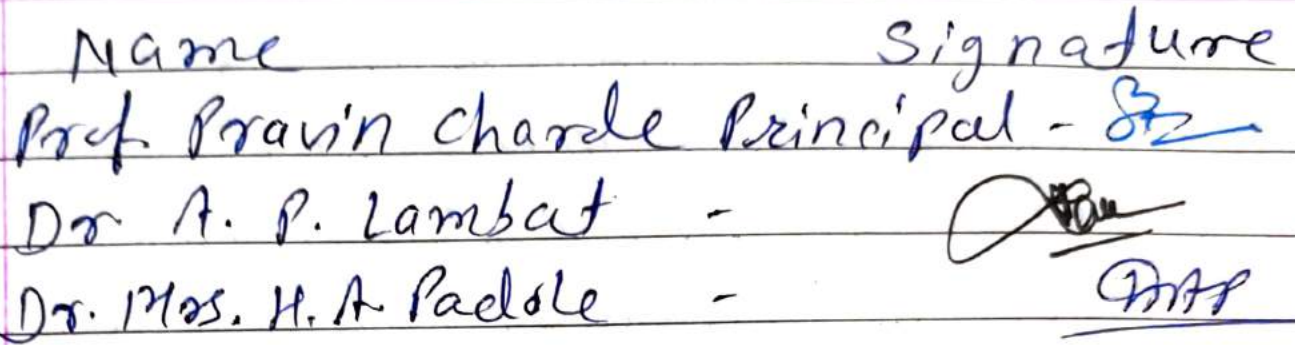 Name Signature
Prof Pravin Charde Principal -
Dr A. P. Lambat -
Dr. Mrs. H. A. Padole -